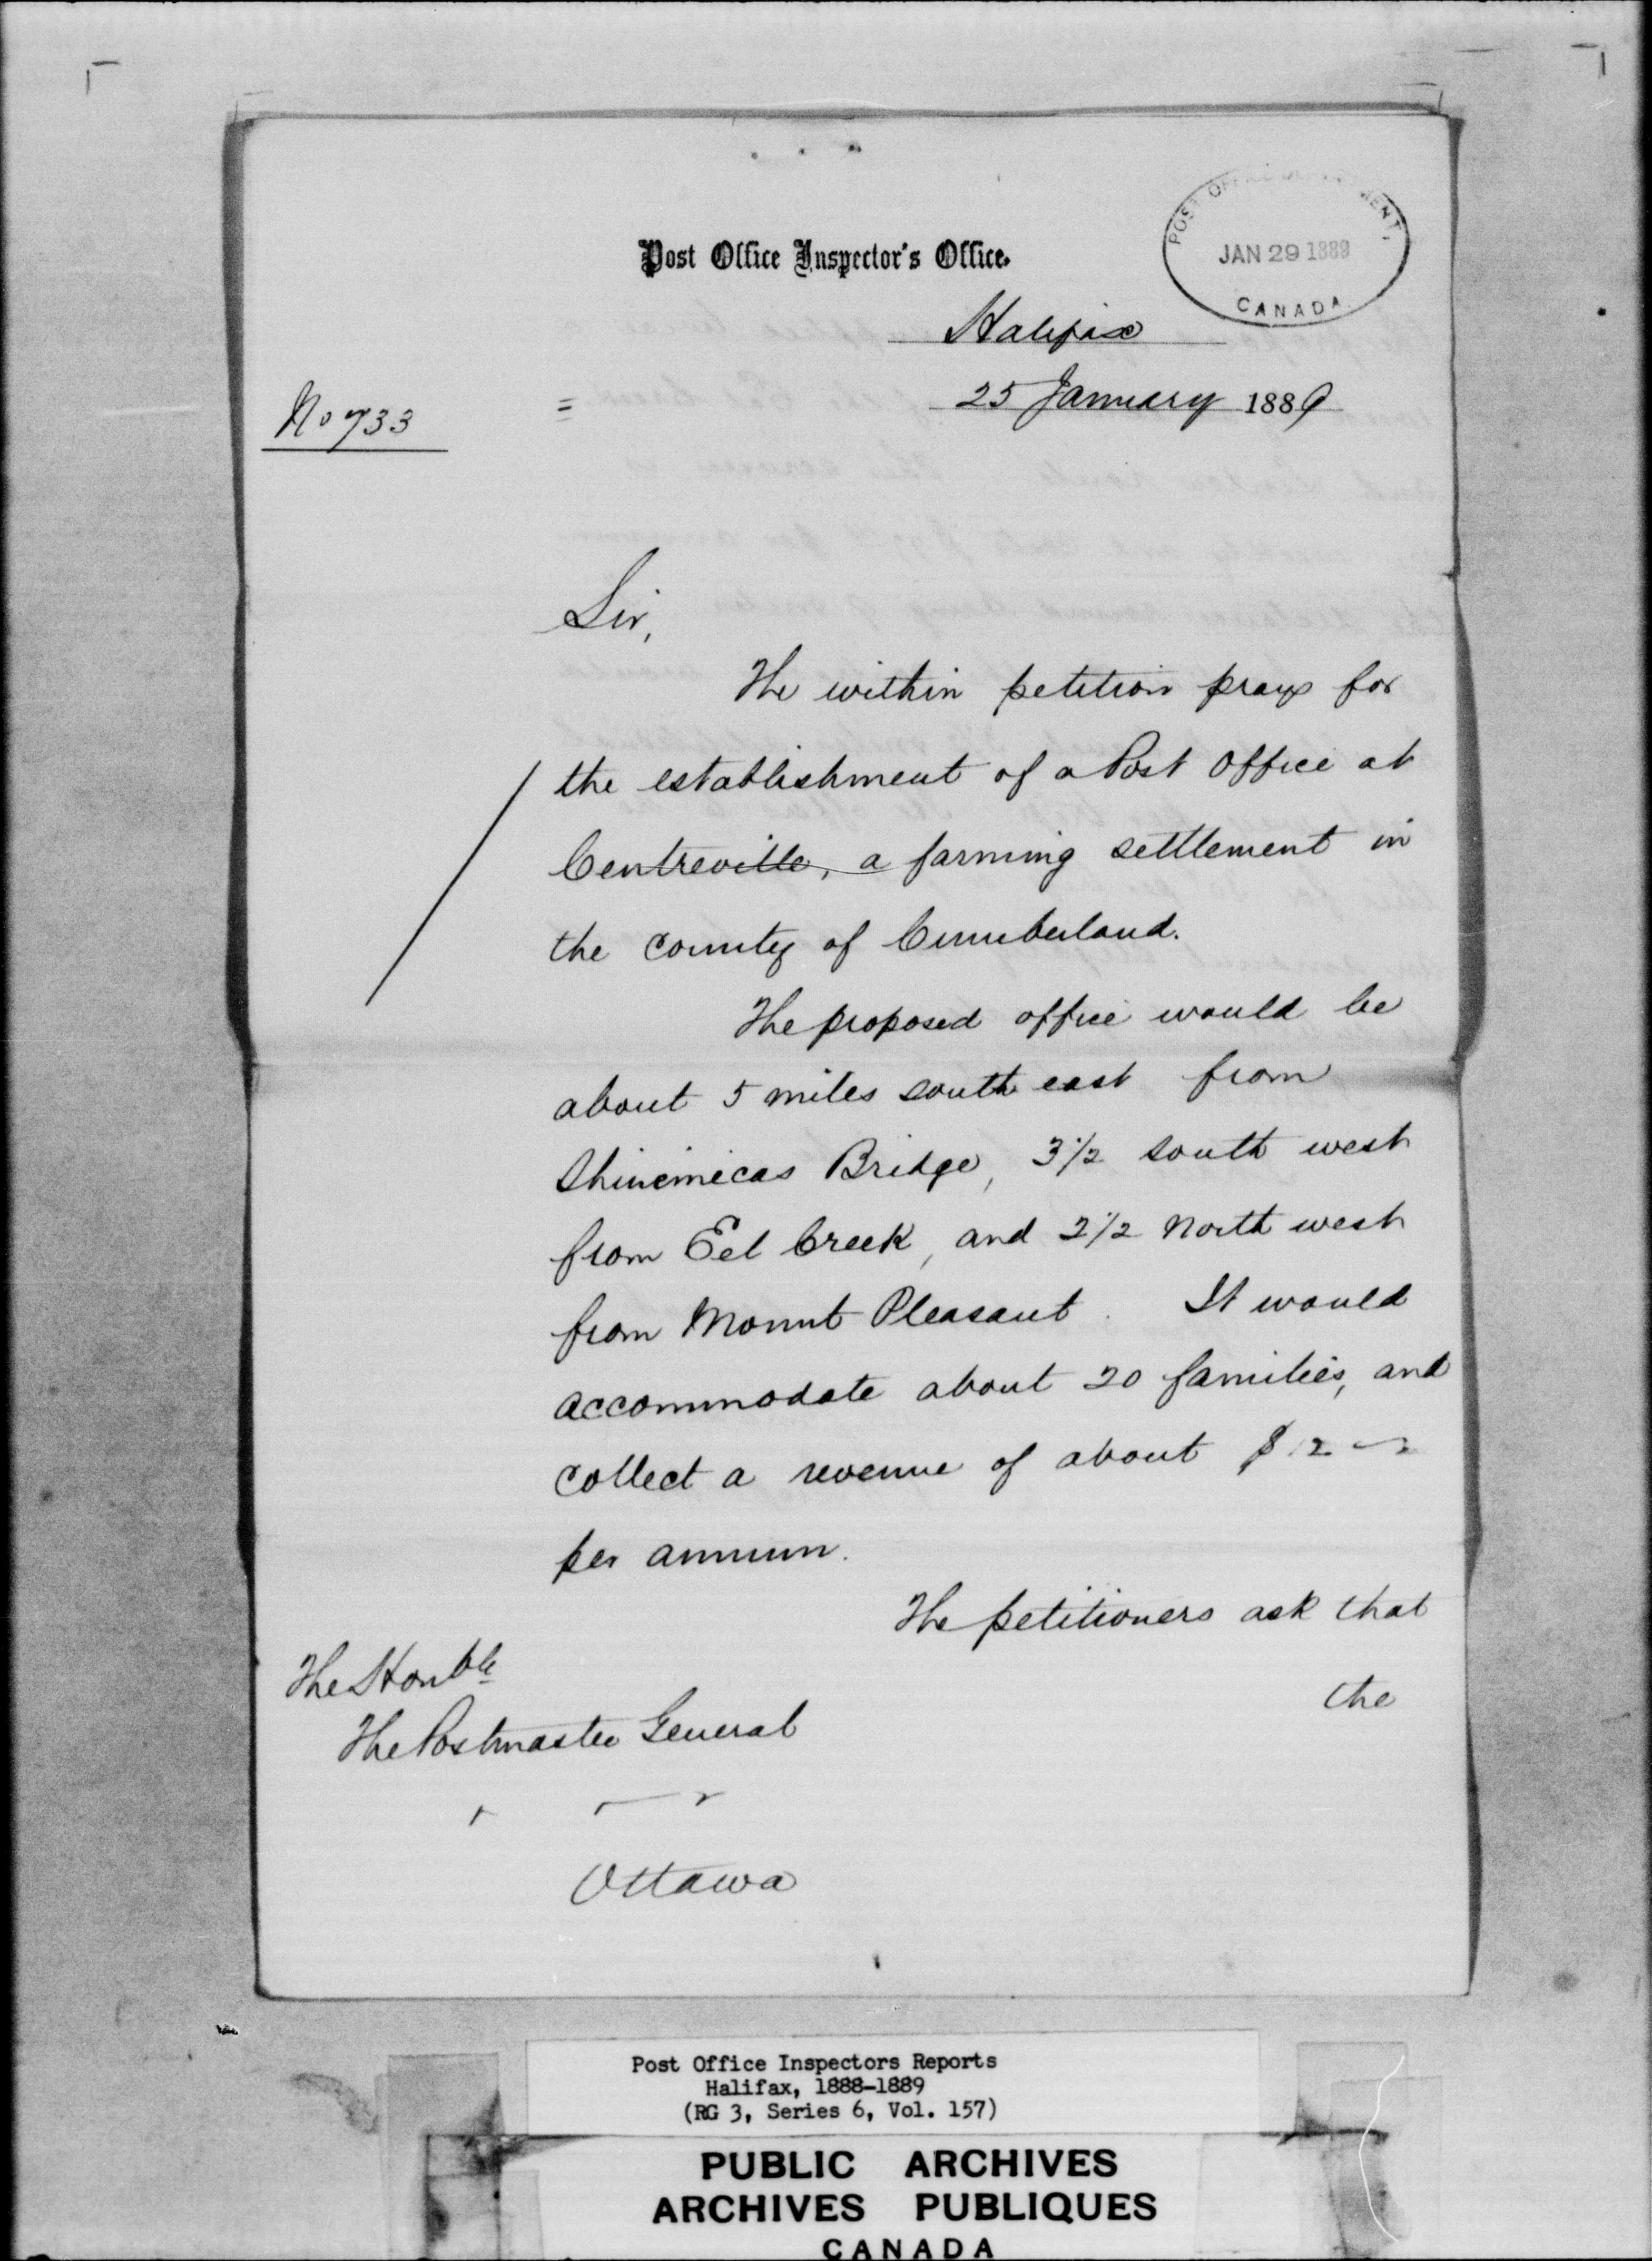 POST OFFICE DEPARTMENT,
JAN 29 1889
CANADA
Post Office Inspector's Office.
Halifax
25 January 1889
No 733
Sir,
The within petition prays for
the establishment of a Post Office at
Centreville, a farming settlement in
the County of Cumberland.
The proposed office would be
about 5 miles south east from
Shinimicas Bridge, 3½ south west
from Eel Creek, and 2½ North west
from Mount Pleasant. It would
accommodate about 20 families, and
collect a revenue of about $12
per annum.
The petitioners ask that
the
The Honble
The Postmaster General
Ottawa
Post Office Inspectors Reports
Halifax, 1888-1889
(RG 3, Series 6, Vol. 157)
PUBLIC ARCHIVES
ARCHIVES PUBLIQUES
CANADA